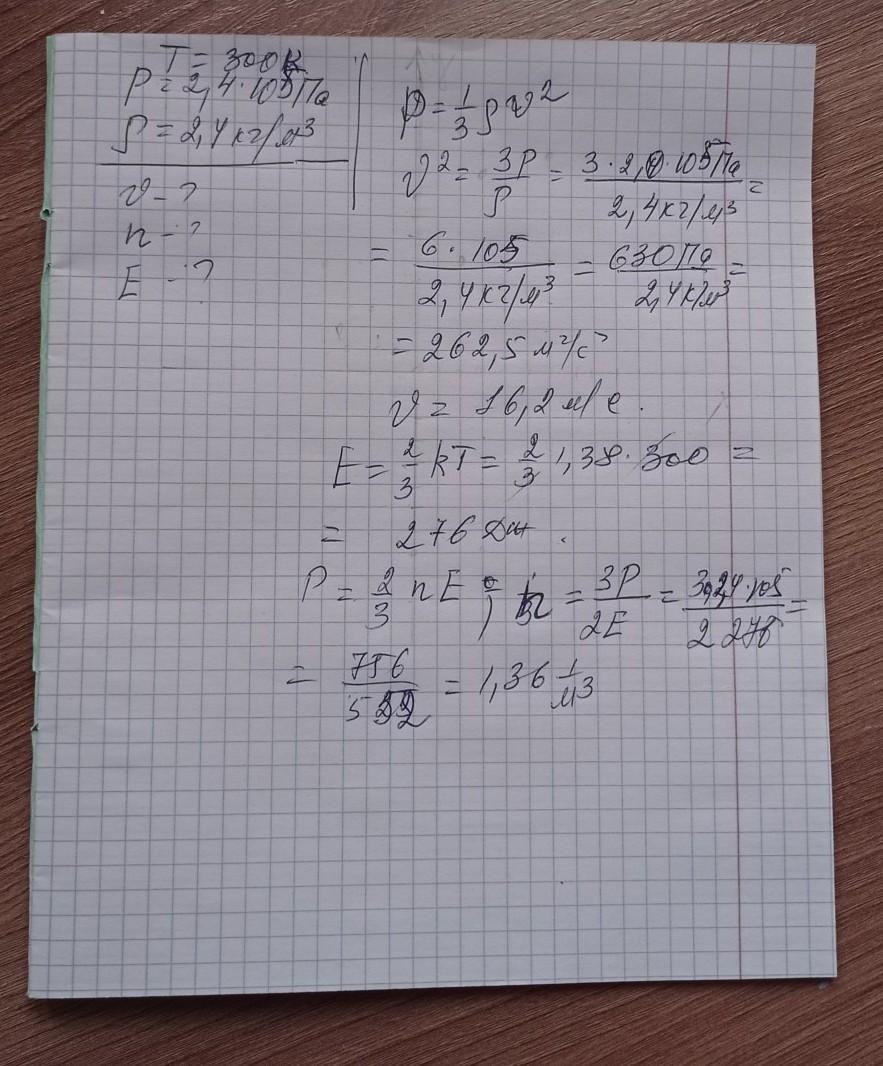 T = 300 К
P = 2,4 · 105 Па
ρ = 2,4 кг/м³
v - ?
n - ?
E - ?
p = 1/3 ρ v²
v² = 3P/ρ = 3 · 2,0 · 105 Па / 2,4 кг/м³ =
= 6 · 105 / 2,4 кг/м³ = 630 Па / 2,4 кг/м³ =
= 262,5 м²/с²
v = 16,2 м/с.
E = 2/3 kT = 2/3 1,38 · 300 =
= 276 Дж.
P = 2/3 n E ; n = 3P/2E = 3 · 2,4 · 105 / 2 276 =
= 756/552 = 1,36 1/м3